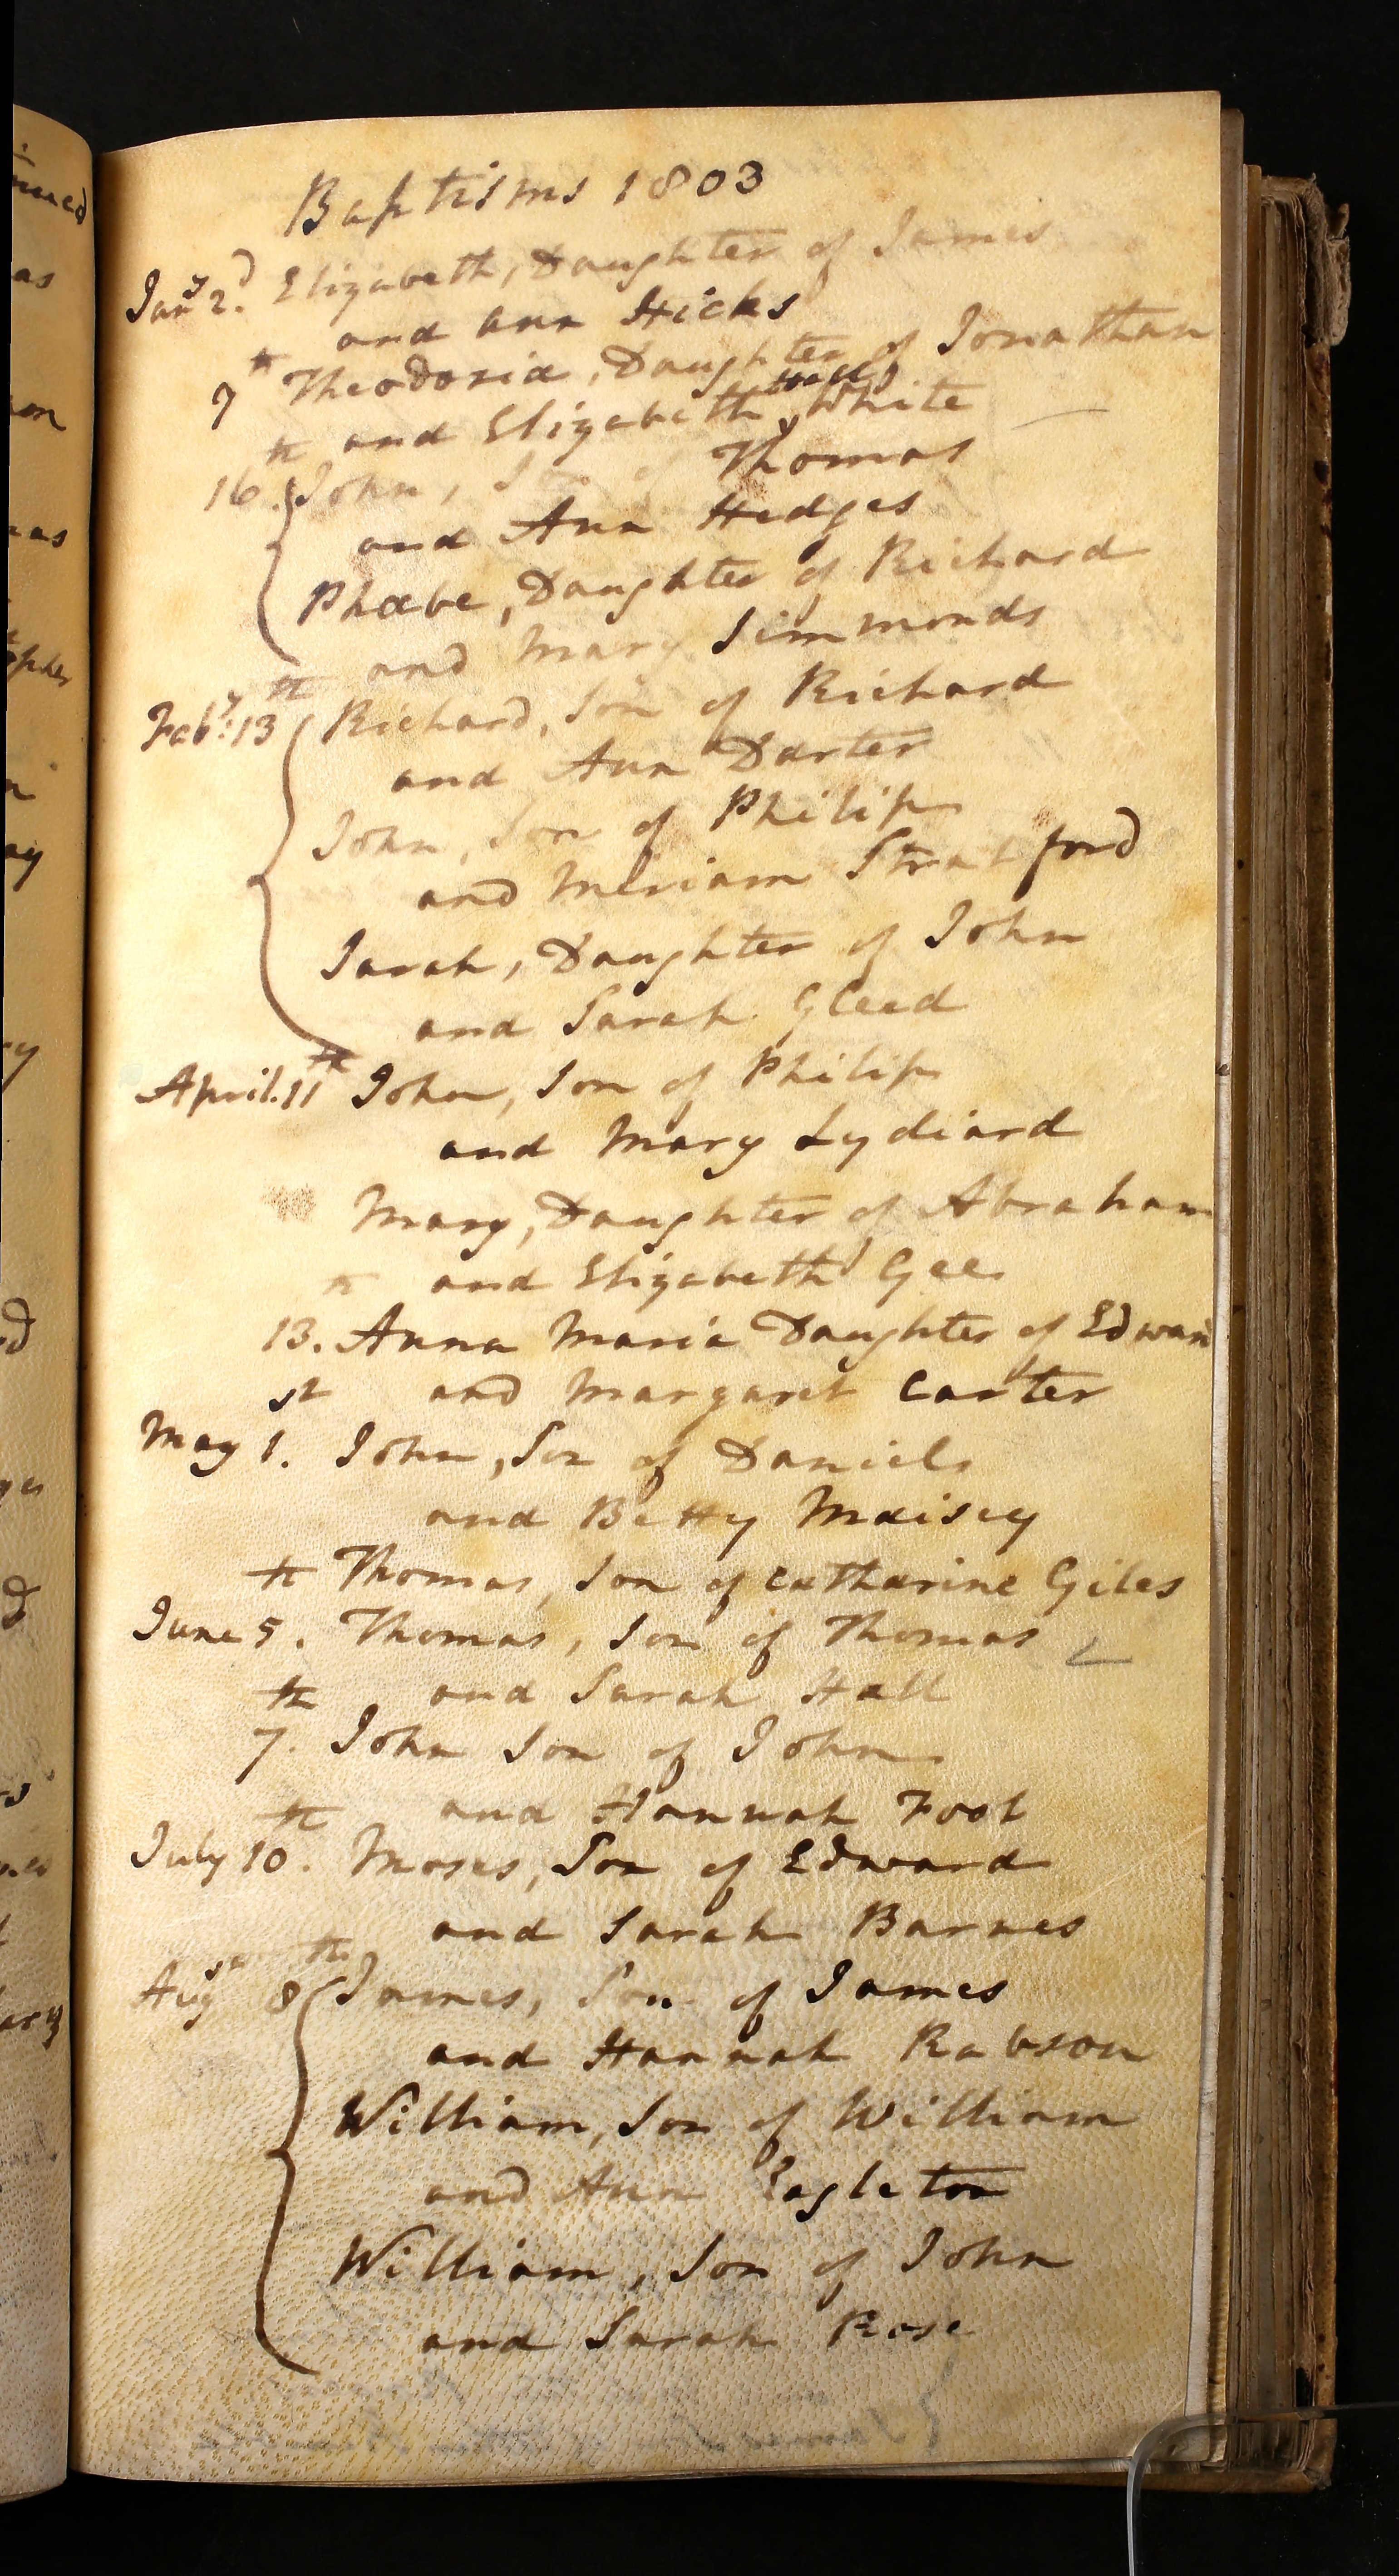 Baptisms 1803
Jany 2d. Elizabeth, Daughter of James
and Ann Hicks
7th Theodosia, Daughter of Jonathan
and Elizabeth White
16th. John, Son of Thomas
and Ann Hedges
Phœbe, Daughter of Richard
and Mary Simmonds
Feby: 13th Richard, Son of Richard
and Ann Darter
John, Son of Philip
and Meriam Stratford
Sarah, Daughter of John
and Sarah Gleed
April. 11th John, Son of Philip
and Mary Lydiard
Mary, Daughter of Abraham
and Elizabeth Gee
13th. Anna Maria Daughter of Edward
and Margaret Carter
May 1st. John, Son of Daniel
and Betty Maisey
Thomas, Son of Catharine Giles
June 5th. Thomas, Son of Thomas
and Sarah Hall
7th. John Son of John
and Hannah Foot
July 10th. Moses, Son of Edward
and Sarah Barnes
Augst 8th James, Son of James
and Hannah Rabson
William, Son of William
and Ann Eagleton
William, Son of John
and Sarah Rose